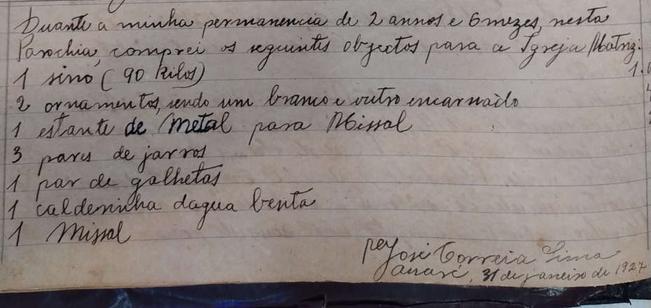 Durante a minha permanencia de 2 annos e 6 mezes, nesta
Parochia, comprei os seguintes objectos para a Igreja Matriz:
1 sino (90 Kilos)
2 ornamentos, sendo um branco e outro encarnado
1 estante de Metal para Missal
3 pares de jarros
1 par de galhetas
1 caldeirinha dagua benta
1 Missal
José Correia Lima
31 de janeiro de 1927